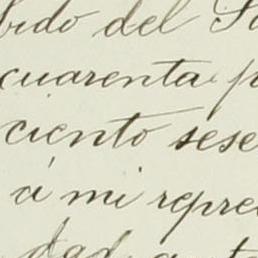 bido del Sa
cuarenta p
ciento sese
á mi repre
dad